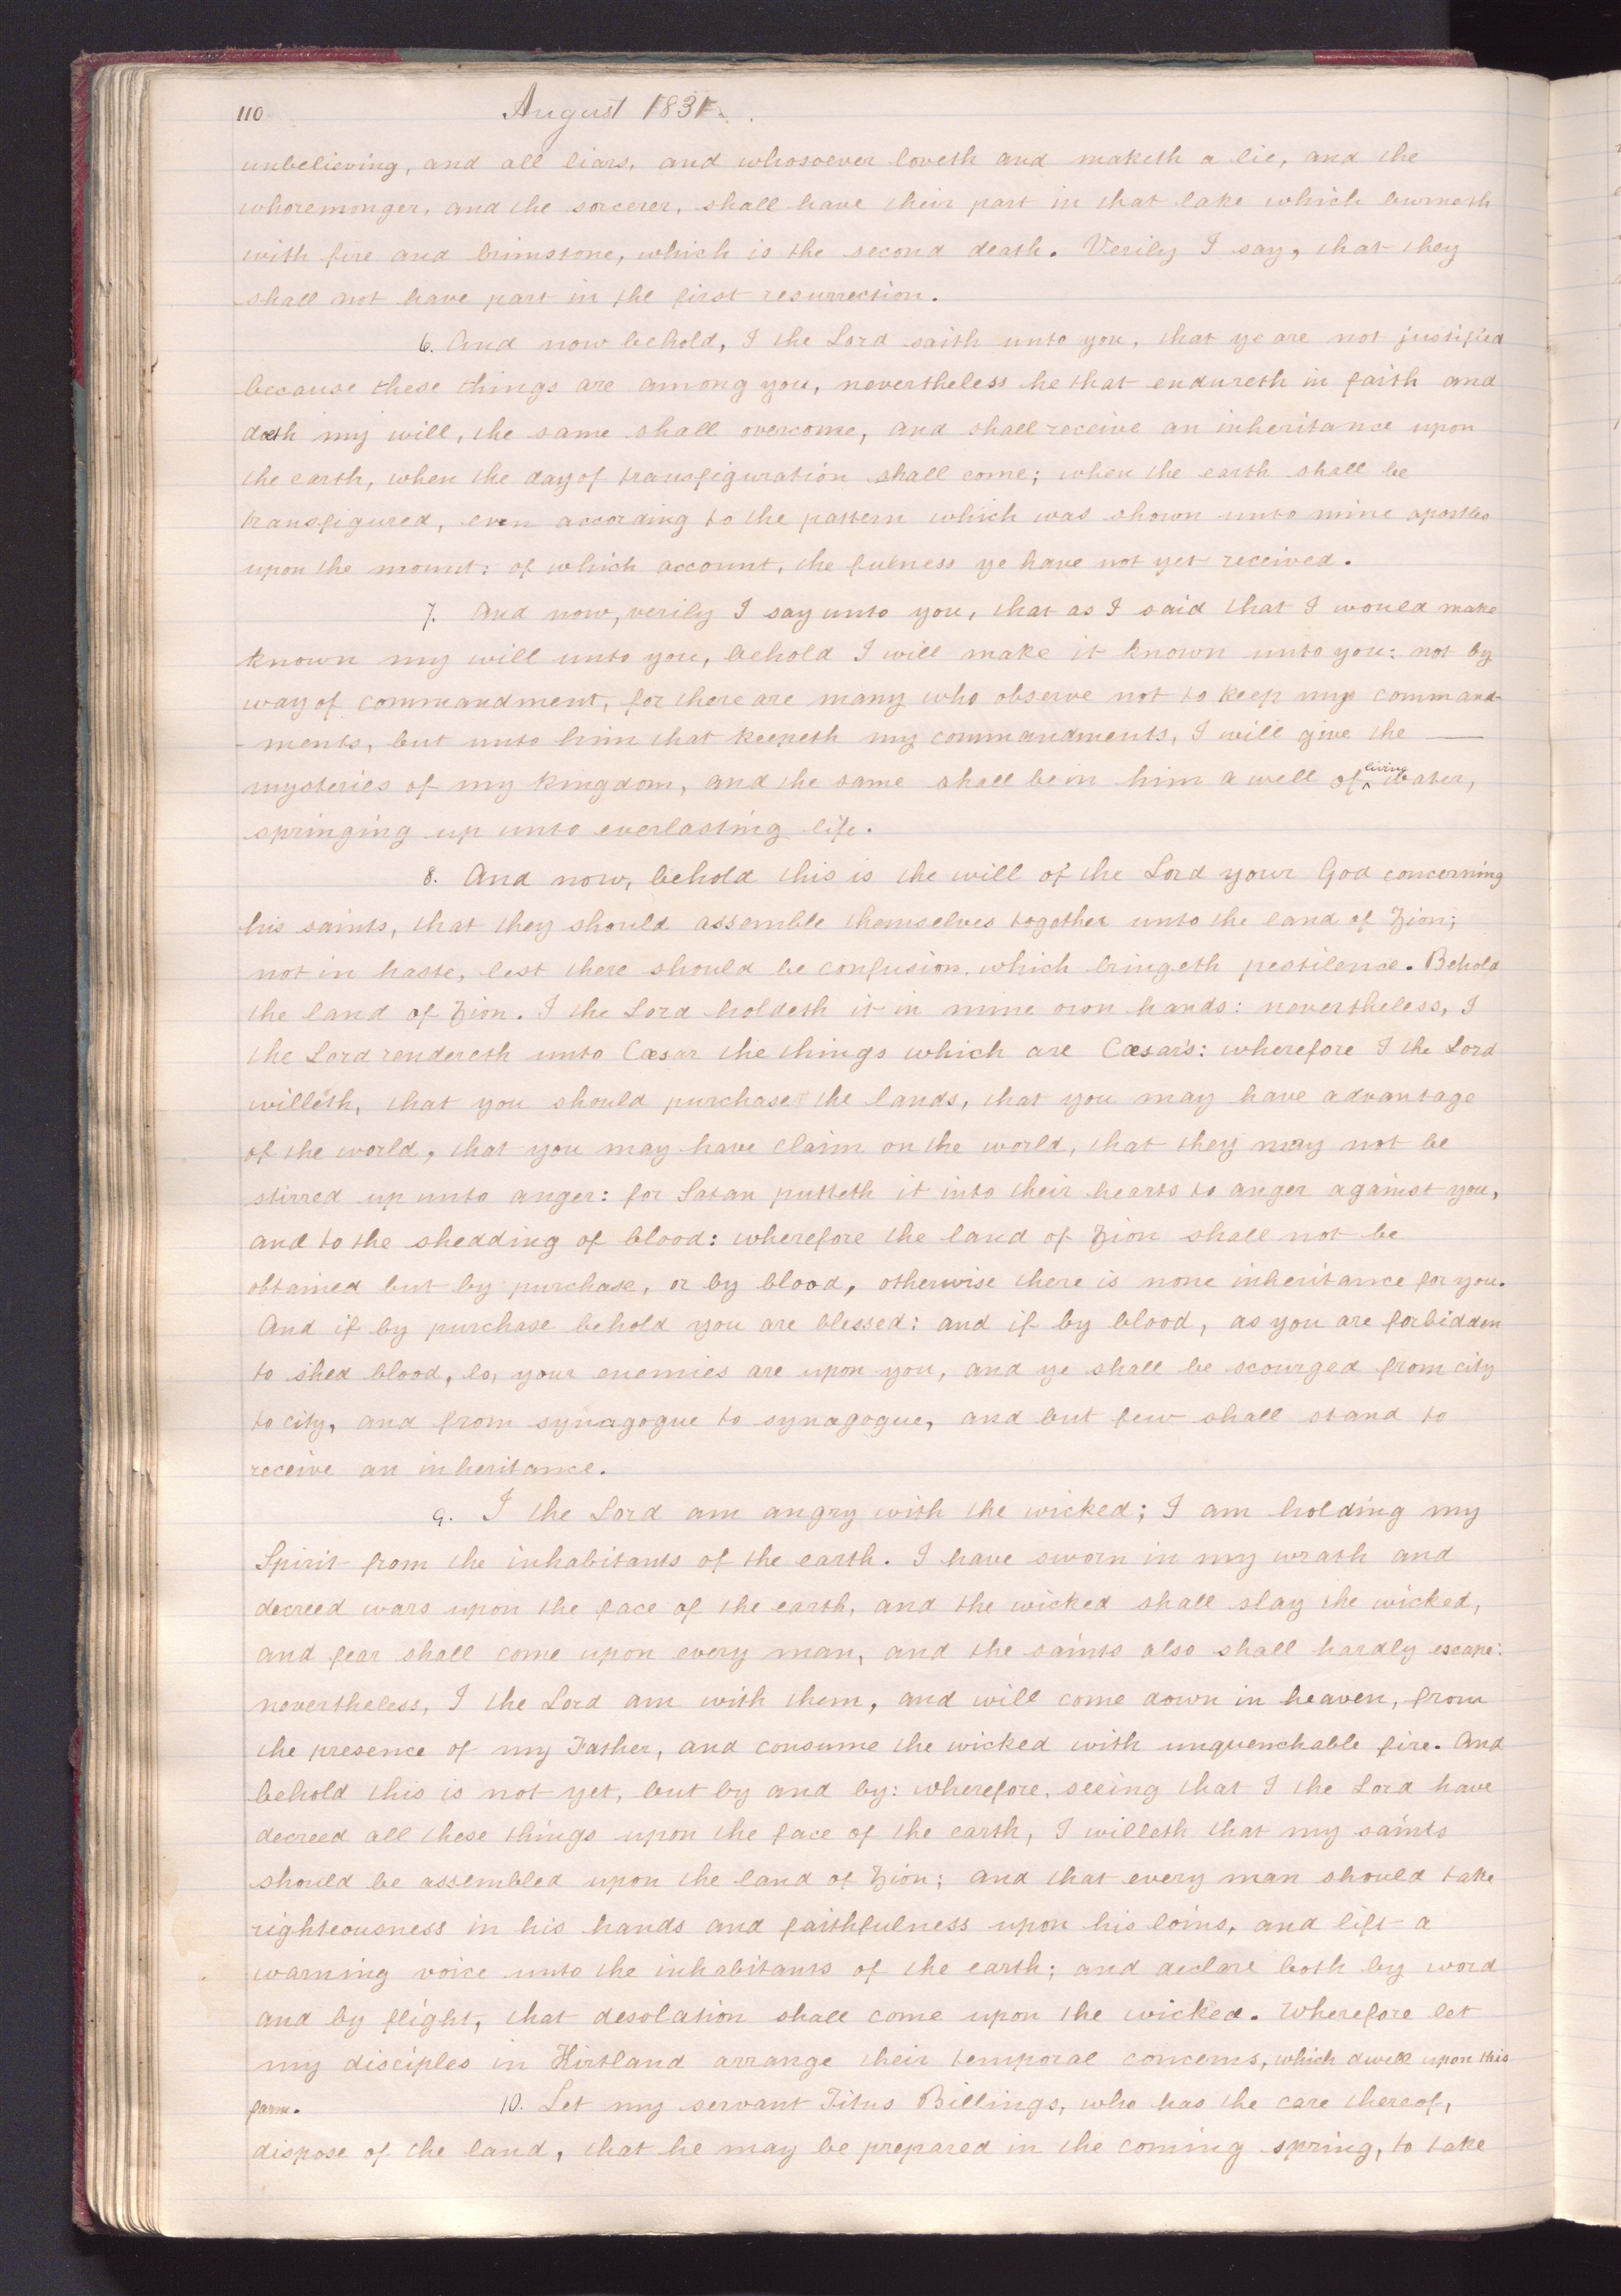 110 August 1831.
unbelieving, and all liars, and whosoever loveth and maketh a lie, and the
whoremonger, and the sorcerer, shall have their part in that lake which burneth
with fire and brimstone, which is the second death. Verily I say, that they
shall not have part in the first resurrection.
6. And now behold, I the Lord saith unto you, that ye are not justified
because these things are among you, nevertheless he that endureth in faith and
doeth my will, the same shall overcome, and shall receive an inheritance upon
the earth, when the day of transfiguration shall come; when the earth shall be
transfigured, even according to the pattern which was shown unto mine apostles
upon the mount: of which account, the fulness ye have not yet received.
7. And now, verily I say unto you, that as I said that I would make
known my will unto you, behold I will make it known unto you: not by
way of commandment, for there are many who observe not to keep my command-
-ments, but unto him that keepeth my commandments, I will give the —
mysteries of my kingdom, and the same shall be in him a well of ^living water,
springing up unto everlasting life.
8. And now, behold this is the will of the Lord your God concerning
his saints, that they should assemble themselves together unto the land of Zion;
not in haste, lest there should be confusion, which bringeth pestilence. Behold
the land of Zion. I the Lord holdeth it in mine own hands: nevertheless, I
the Lord rendereth unto Cæsar the things which are Cæsar's: wherefore I the Lord
willeth, that you should purchase the lands, that you may have advantage
of the world, that you may have claim on the world, that they may not be
stirred up unto anger: for Satan putteth it into their hearts to anger against you,
and to the shedding of blood: wherefore the land of Zion shall not be
obtained but by purchase, or by blood, otherwise there is none inheritance for you.
And if by purchase behold you are blessed: and if by blood, as you are forbidden
to shed blood, lo, your enemies are upon you, and ye shall be scourged from city
to city, and from synagogue to synagogue, and but few shall stand to
receive an inheritance.
9. I the Lord am angry with the wicked; I am holding my
Spirit from the inhabitants of the earth. I have sworn in my wrath and
decreed wars upon the face of the earth, and the wicked shall slay the wicked,
and fear shall come upon every man, and the saints also shall hardly escape:
nevertheless, I the Lord am with them, and will come down in heaven, from
the presence of my Father, and consume the wicked with unquenchable fire. And
behold this is not yet, but by and by: wherefore, seeing that I the Lord have
decreed all these things upon the face of the earth, I willeth that my saints
should be assembled upon the land of Zion; and that every man should take
righteousness in his hands and faithfulness upon his loins, and lift a
warning voice unto the inhabitants of the earth; and declare both by word
and by flight, that desolation shall come upon the wicked. Wherefore let
my disciples in Kirtland arrange their temporal concerns, which dwell upon this
farm. 10. Let my servant Titus Billings, who has the care thereof,
dispose of the land, that he may be prepared in the coming spring, to take